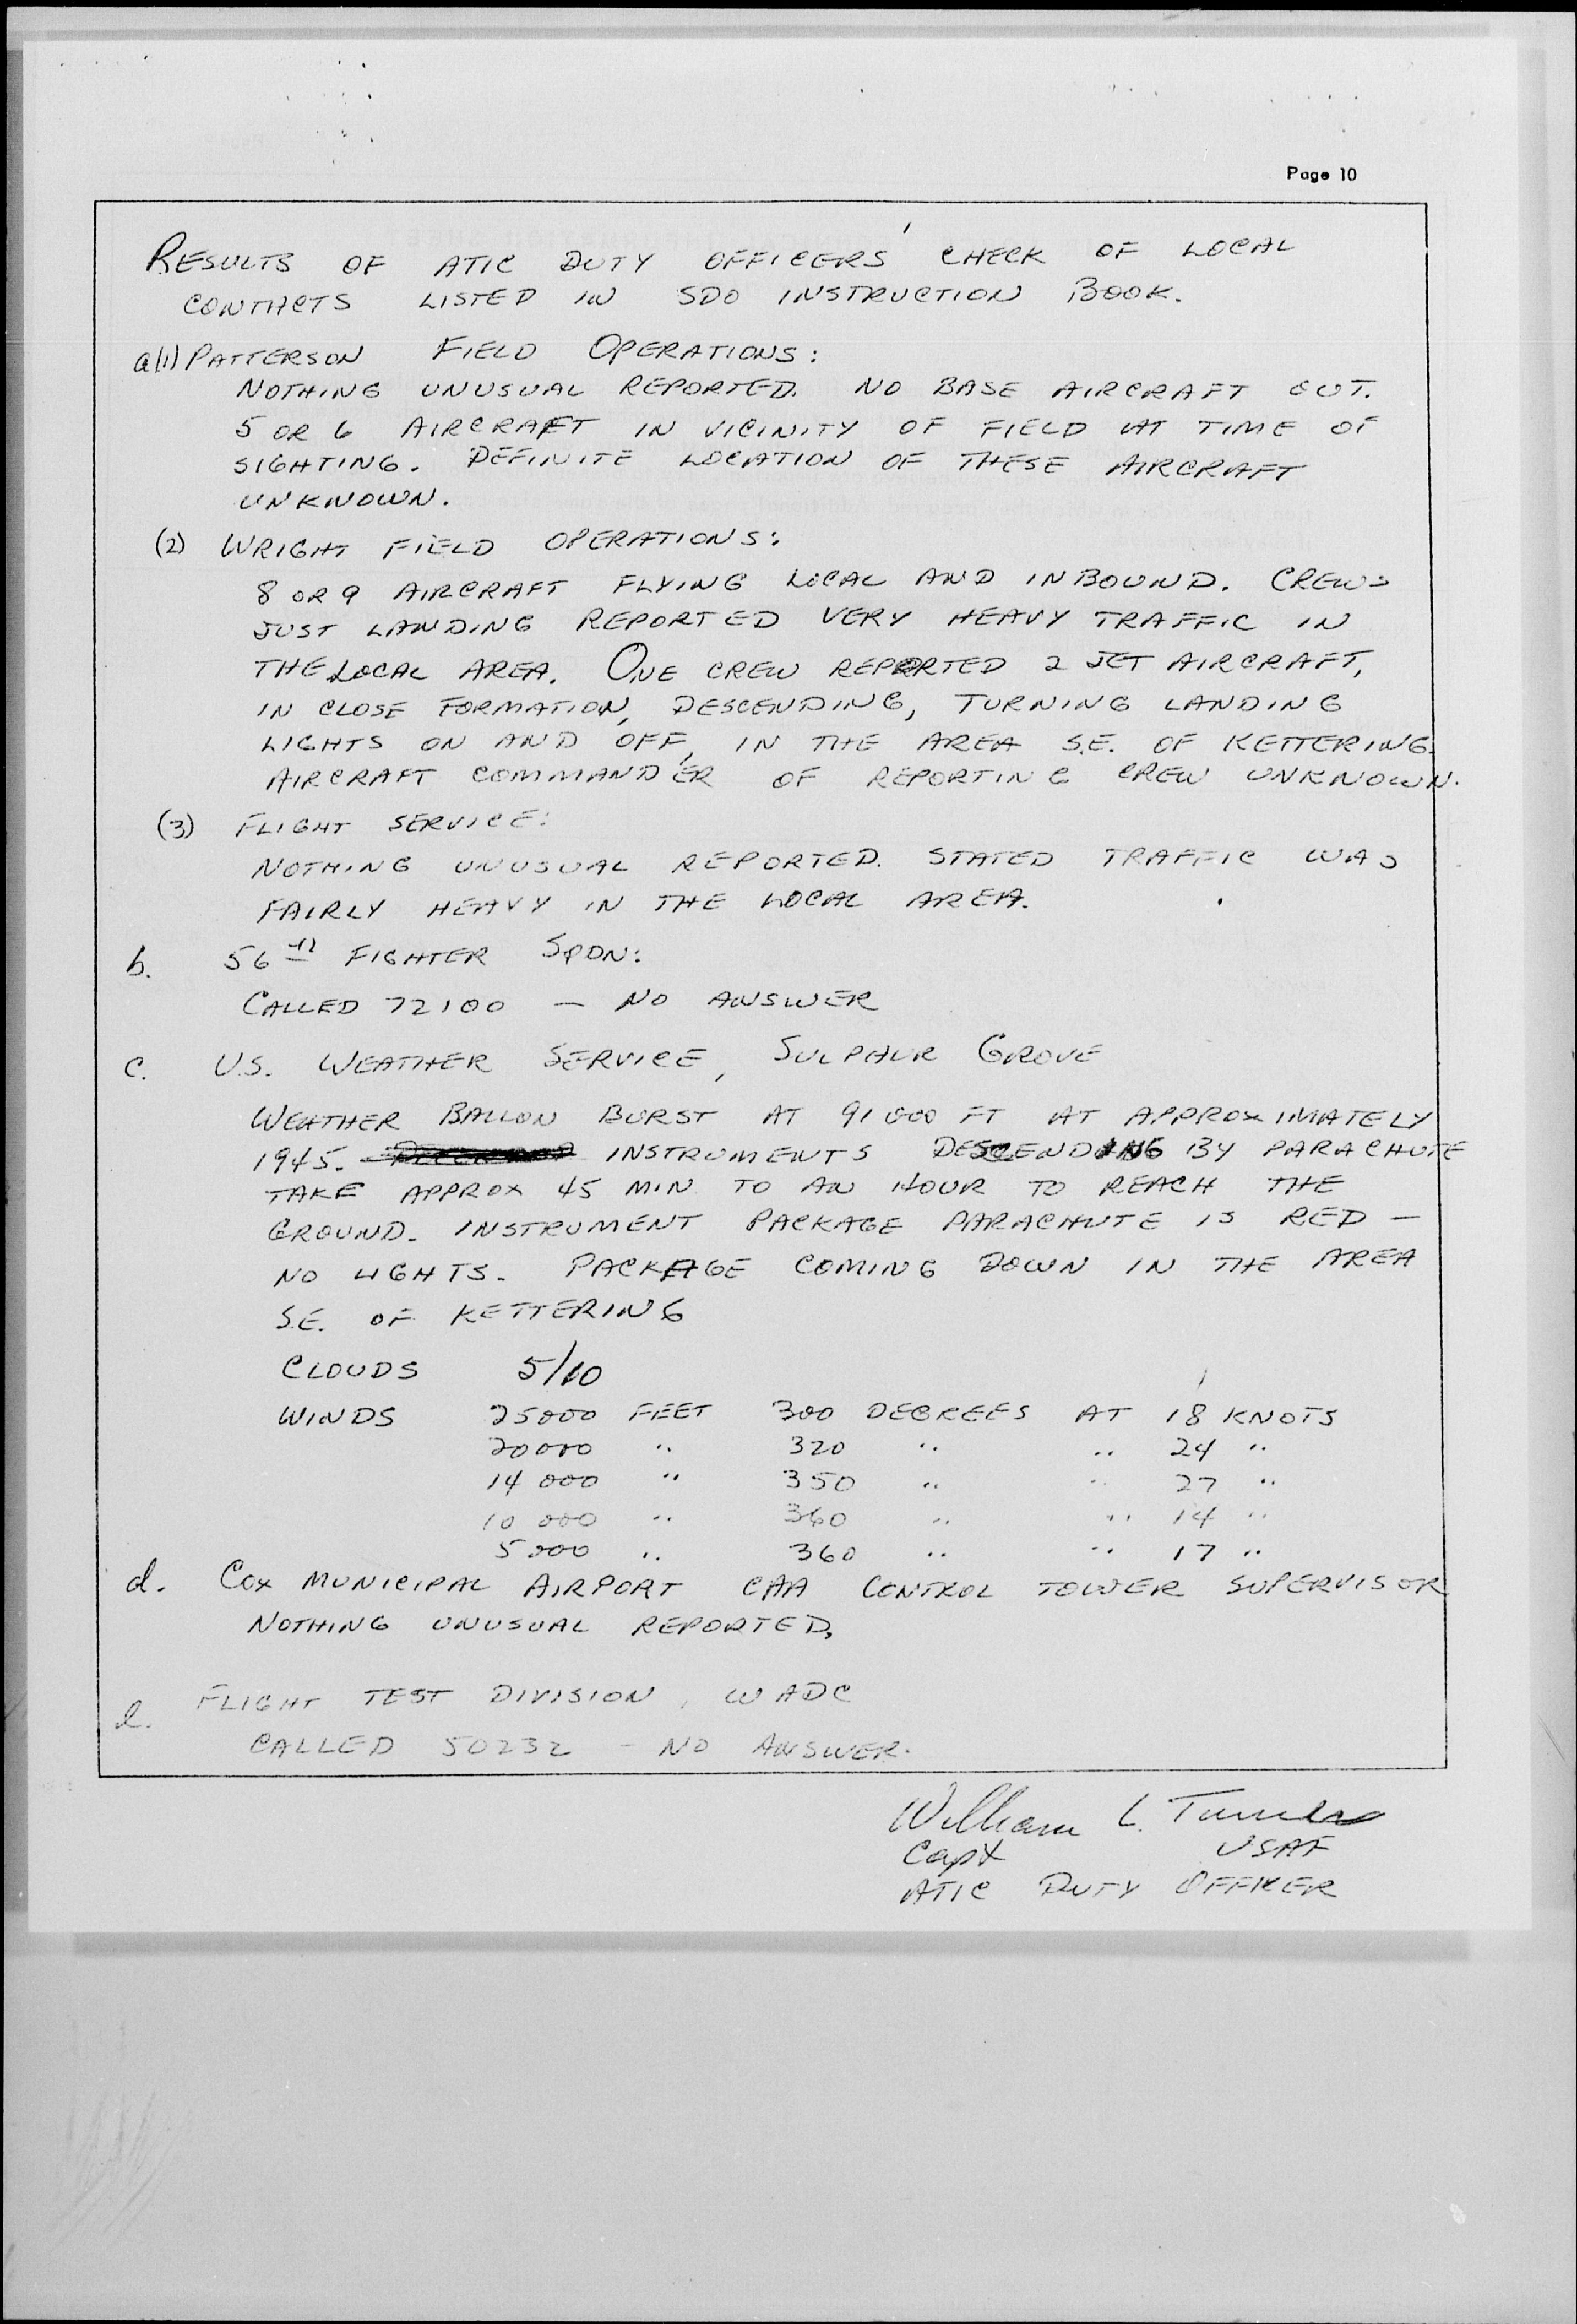 Page 10
RESULTS OF ATIC DUTY OFFICERS' CHECK OF LOCAL
CONTACTS LISTED IN SDO INSTRUCTION BOOK.
a(1) PATTERSON FIELD OPERATIONS:
NOTHING UNUSUAL REPORTED. NO BASE AIRCRAFT OUT.
5 OR 6 AIRCRAFT IN VICINITY OF FIELD AT TIME OF
SIGHTING. DEFINITE LOCATION OF THESE AIRCRAFT
UNKNOWN.
(2) WRIGHT FIELD OPERATIONS:
8 OR 9 AIRCRAFT FLYING LOCAL AND INBOUND. CREWS
JUST LANDING REPORTED VERY HEAVY TRAFFIC IN
THE LOCAL AREA. ONE CREW REPORTED 2 JET AIRCRAFT,
IN CLOSE FORMATION, DESCENDING, TURNING LANDING
LIGHTS ON AND OFF, IN THE AREA S.E. OF KETTERING.
AIRCRAFT COMMANDER OF REPORTING CREW UNKNOWN.
(3) FLIGHT SERVICE:
NOTHING UNUSUAL REPORTED. STATED TRAFFIC WAS
FAIRLY HEAVY IN THE LOCAL AREA.
b. 56TH FIGHTER SQDN:
CALLED 72100 — NO ANSWER
c. U.S. WEATHER SERVICE, SULPHUR GROVE
WEATHER BALLON BURST AT 91000 FT AT APPROXIMATELY
1945. INSTRUMENTS DESCENDING BY PARACHUTE
TAKE APPROX 45 MIN TO AN HOUR TO REACH THE
GROUND. INSTRUMENT PACKAGE PARACHUTE IS RED —
NO LIGHTS. PACKAGE COMING DOWN IN THE AREA
S.E. OF KETTERING
CLOUDS 5/10
WINDS 25000 FEET 300 DEGREES AT 18 KNOTS
20000 " 320 " " 24 "
14000 " 350 " " 27 "
10000 " 360 " " 14 "
5000 " 360 " " 17 "
d. COX MUNICIPAL AIRPORT CAA CONTROL TOWER SUPERVISOR
NOTHING UNUSUAL REPORTED.
e. FLIGHT TEST DIVISION, WADC
CALLED 50232 — NO ANSWER.
William L.
Capt USAF
ATIC DUTY OFFICER